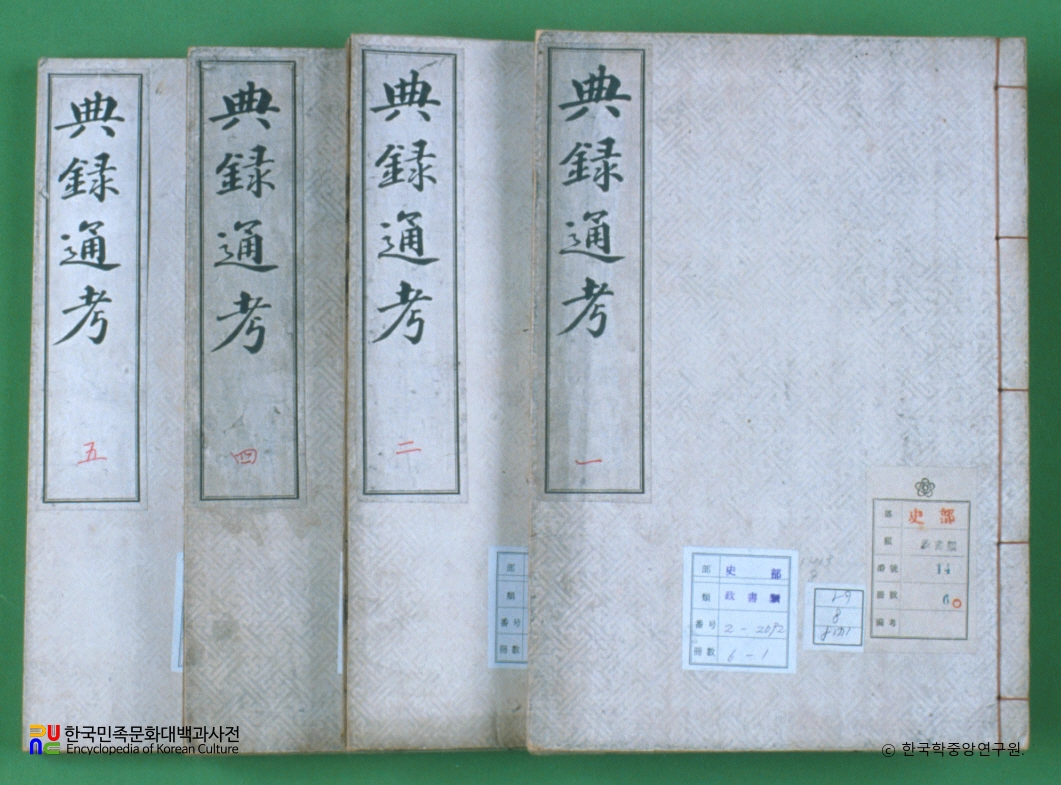 典録通考
五
典録通考
四
典録通考
二
典録通考
一
部
類
番号
冊数
部 史部
類 政書類
番号 2-2092
冊数 6-1
部 史部
番號 14
冊數 6
備考
한국민족문화대백과사전
Encyclopedia of Korean Culture
© 한국학중앙연구원.